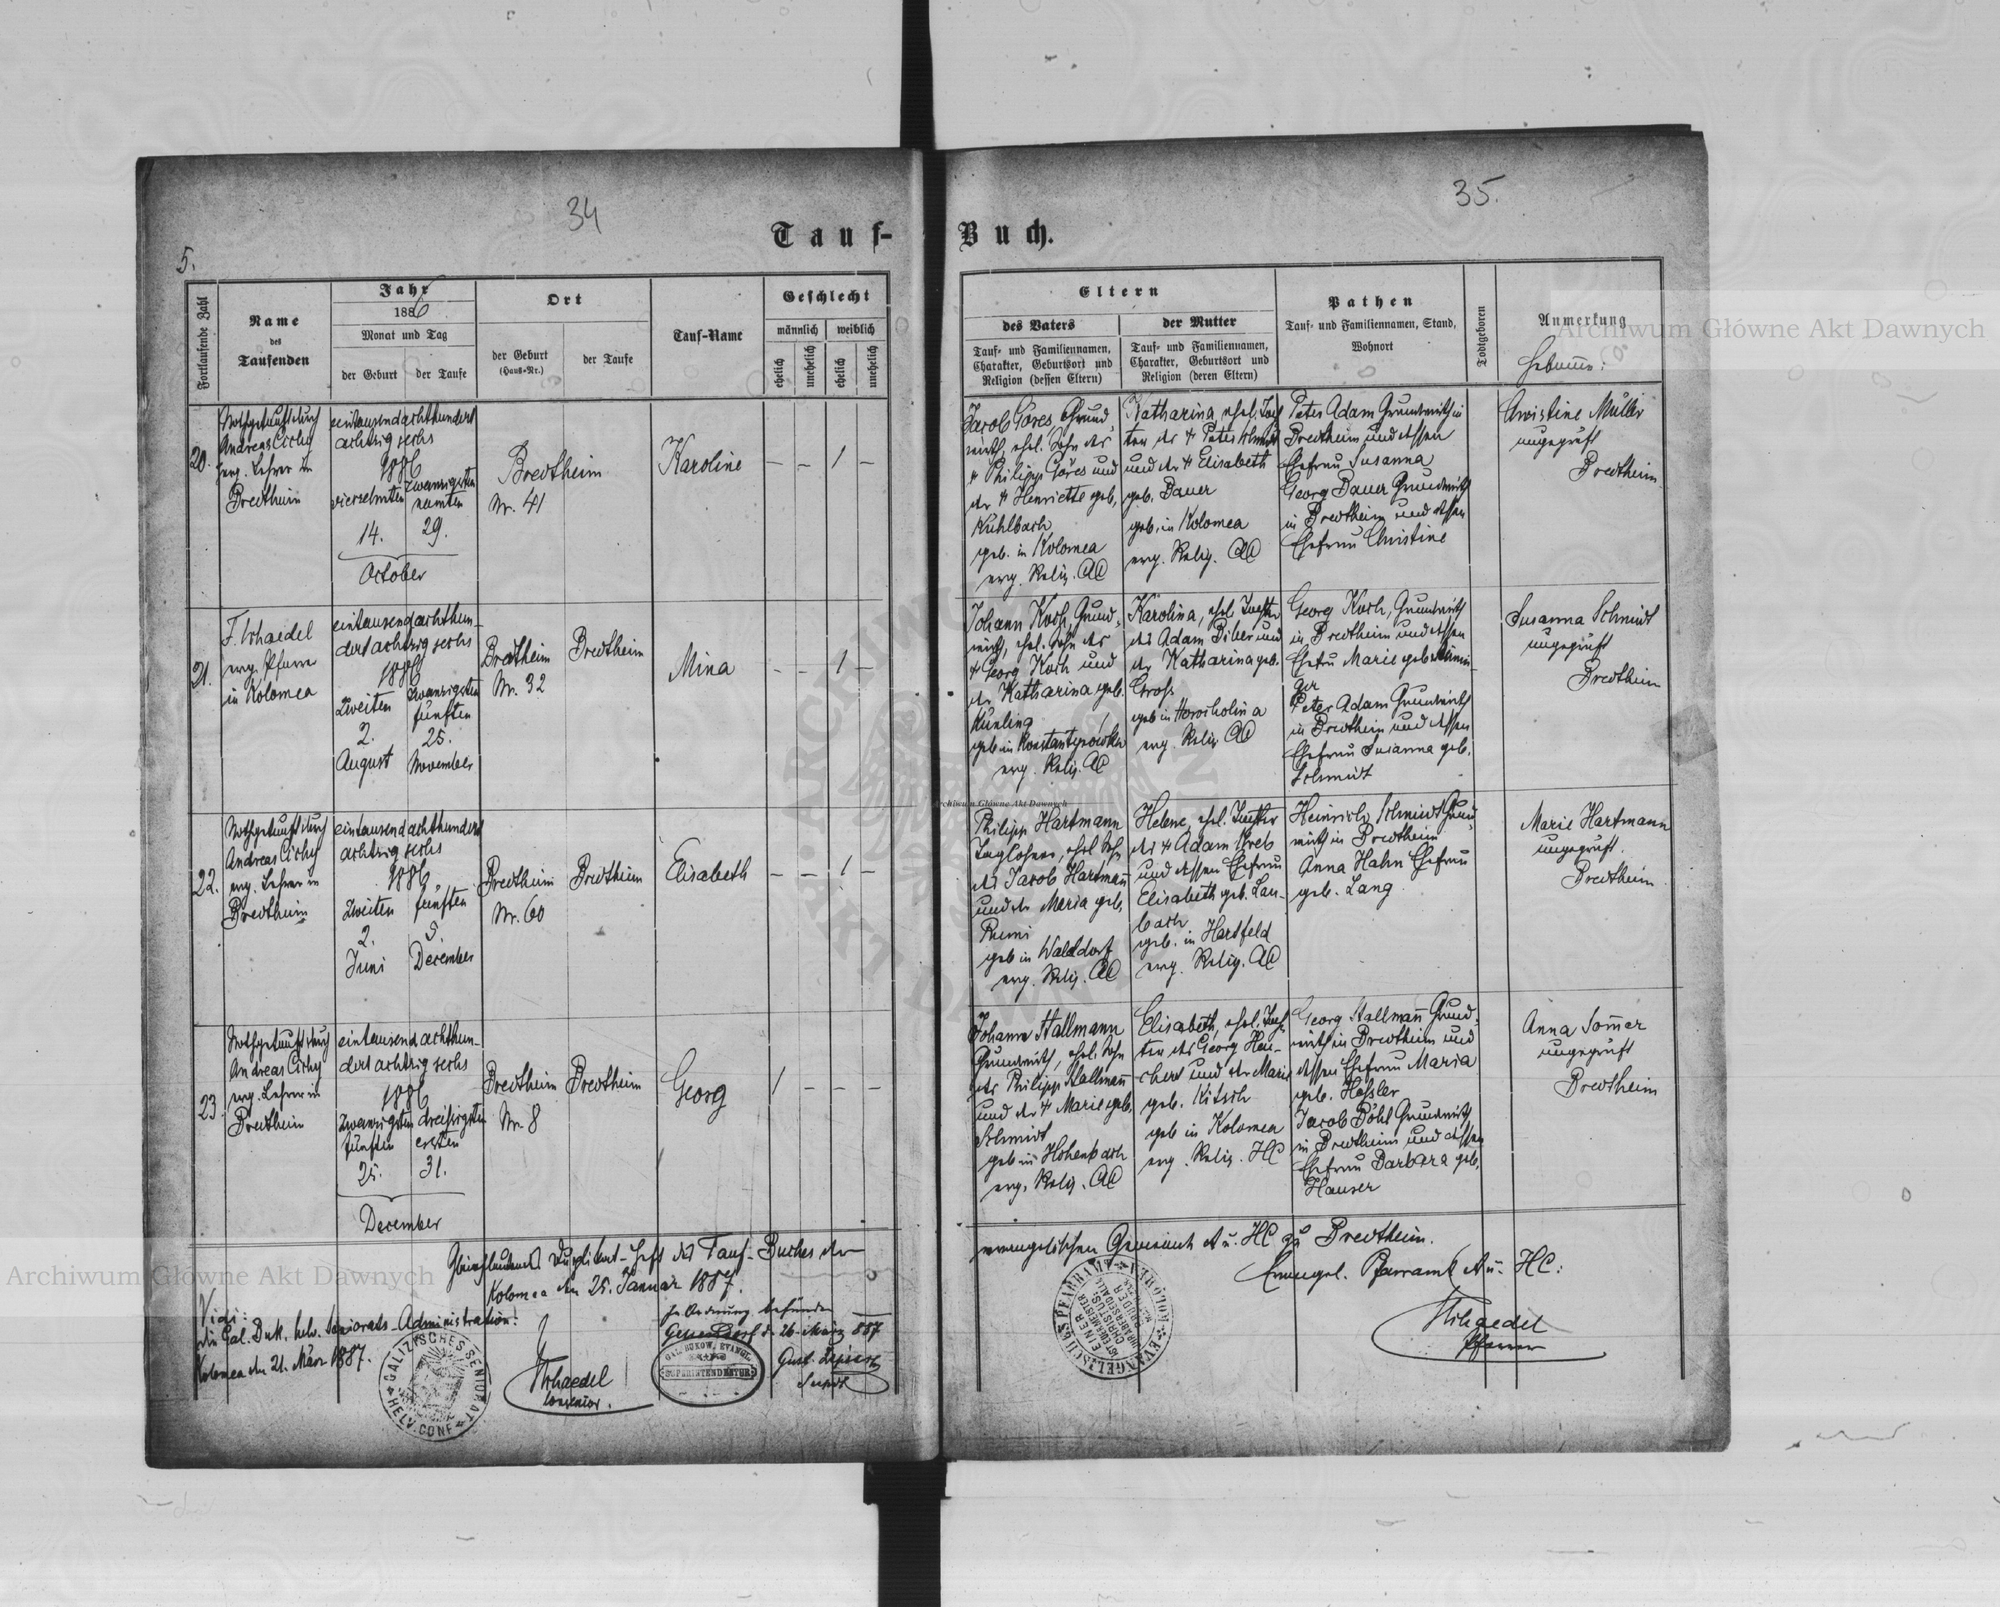 34
35.
5.
Tauf-
Buch.
Fortlaufende Zahl
Name
des
Taufenden
Jahr
1886
Monat und Tag
der Geburt
der Taufe
Ort
der Geburt
(Haus-Nr.)
der Taufe
Tauf-Name
Geschlecht
männlich
weiblich
ehelich
unehelich
ehelich
unehelich
Eltern
des Vaters
Tauf- und Familiennamen,
Charakter, Geburtsort und
Religion (dessen Eltern)
der Mutter
Tauf- und Familiennamen,
Charakter, Geburtsort und
Religion (deren Eltern)
Pathen
Tauf- und Familiennamen, Stand,
Wohnort
Todtgeboren
Anmerkung
Hebamme:
20.
Nothgetauft durch
Andreas Cichy
evg. Lehrer in
Bredtheim
eintausendachthundert
achtzig sechs
1886
vierzehnten
14.
zwanzigsten
neunten
29.
October
Bredtheim
Nr. 41
Karoline
– – 1 –
Jacob Göres, Grund-
wirth, ehel. Sohn des
+ Philipp Göres und
der + Henriette geb.
Kühlbach
geb. in Kolomea
evg. Relig. AC
Katharina, ehel. Toch-
ter des + Peter Schmidt
und der + Elisabeth
geb. Bauer
geb. in Kolomea
evg. Relig. AC
Peter Adam Grundwirth in
Bredtheim und dessen
Ehefrau Susanna
Georg Bauer Grundwirth
in Bredtheim und dessen
Ehefrau Christine
Christine Müller
ungeprüft
Bredtheim
21.
F. Schaedel
evg. Pfarrer
in Kolomea
eintausendachthun-
dertachtzig sechs
1886
zweiten
2.
August
zwanzigsten
fünften
25.
November
Bredtheim
Nr. 32
Bredtheim
Mina
– – 1 –
Johann Koch, Grund-
wirth, ehel. Sohn des
+ Georg Koch und
der Katharina geb.
geb in Konstantynówka
evg. Relig. AC
Karolina, ehel. Tochter
des Adam Biber und
der Katharina geb.
Gross
geb in Horocholina
evg. Relig. AC
Georg Koch, Grundwirth
in Bredtheim und dessen
Ehefrau Marie geb.
ger
Peter Adam Grundwirth
in Bredtheim und dessen
Ehefrau Susanna geb.
Schmidt
Susanna Schmidt
ungeprüft
Bredtheim
22.
Nothgetauft durch
Andreas Cichy
evg. Lehrer in
Bredtheim
eintausendachthundert
achtzig sechs
1886
zweiten
2.
Juni
fünften
5.
December
Bredtheim
Nr. 60
Bredtheim
Elisabeth
– – 1 –
Philipp Hartmann
Taglöhner, ehel. Sohn
des Jacob Hartmann
und der Maria geb.
geb in Walddorf
evg. Relig. AC
Helene, ehel. Tochter
des + Adam Kreb
und dessen Ehefrau
Elisabeth geb. Lau-
bach
geb. in Hartfeld
evg. Relig. AC
Heinrich Schmidt Grund-
wirth in Bredtheim
Anna Hahn Ehefrau
geb. Lang
Marie Hartmann
ungeprüft.
Bredtheim
23
Nothgetauft durch
Andreas Cichy
evg. Lehrer in
Bredtheim
eintausendachthun-
dertachtzig sechs
1886
zwanzigsten
fünften
25.
dreißigsten
ersten
31.
December
Bredtheim
Nr. 8
Bredtheim
Georg
1 – – –
Johann Stallmann
Grundwirth, ehel. Sohn
des Philipp Stallmann
und der + Marie geb.
Schmidt
geb in Hohenbach
evg. Relig. AC
Elisabeth, ehel. Toch-
ter des Georg Heu-
chert und der Marie
geb. Kitsch
geb in Kolomea
evg. Relig. HC
Georg Stallmann Grund-
wirth in Bredtheim und
dessen Ehefrau Maria
geb. Hessler
Jacob Pöhl Grundwirth
in Bredtheim und dessen
Ehefrau Barbara geb.
Hauser
Anna Sommer
ungeprüft
Bredtheim
Gleichlautendes Duplicat-Heft des Tauf-Buches der
evangelischen Gemeinde A u. HC zu Bredtheim.
Kolomea den 25. Januar 1887.
Evangel. Pfarramt A u. HC:
Schaedel
Pfarrer
Vidi:
die Gal. Buk. helv. Seniorats-Administration:
Kolomea den 21. März 1887.
Schaedel
Consenior.
In Ordnung befunden
d. 26. März 887
GALIZISCHES SENIORAT
HELV. CONF.
GAL. BUKOW. EVANGL.
SUPERINTENDENTUR
EVANGELISCHES PFARRAMT
KOLOMEA
EINER IST
EUER MEISTER
CHRISTUS
Archiwum Główne Akt Dawnych
Archiwum Główne Akt Dawnych
Archiwum Główne Akt Dawnych
ARCHIWUM
AKT DAWNYCH